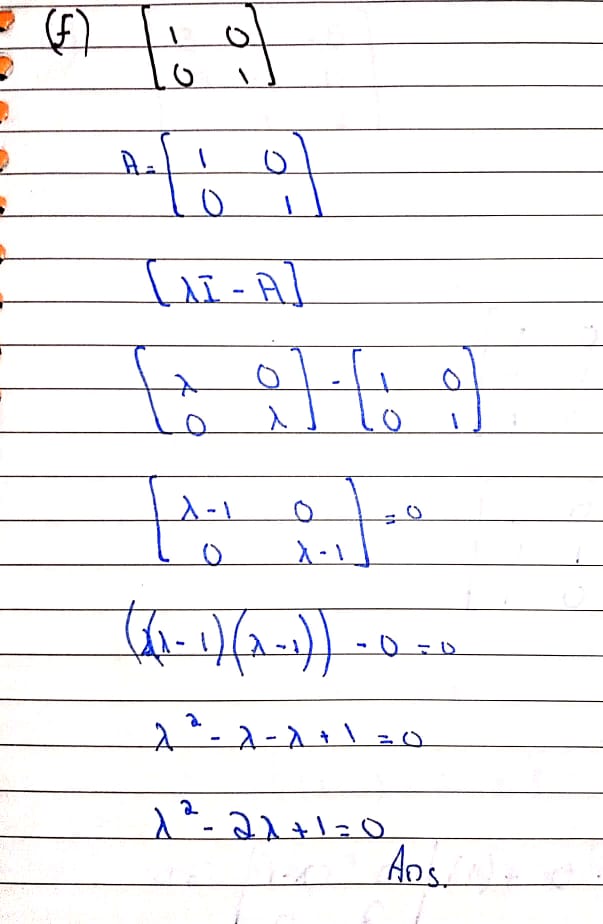 (f) [1 0
0 1]
A = [1 0
0 1]
[λI - A]
[λ 0
0 λ] - [1 0
0 1]
[λ-1 0
0 λ-1] = 0
((λ-1)(λ-1)) - 0 = 0
λ² - λ - λ + 1 = 0
λ² - 2λ + 1 = 0
Ans.